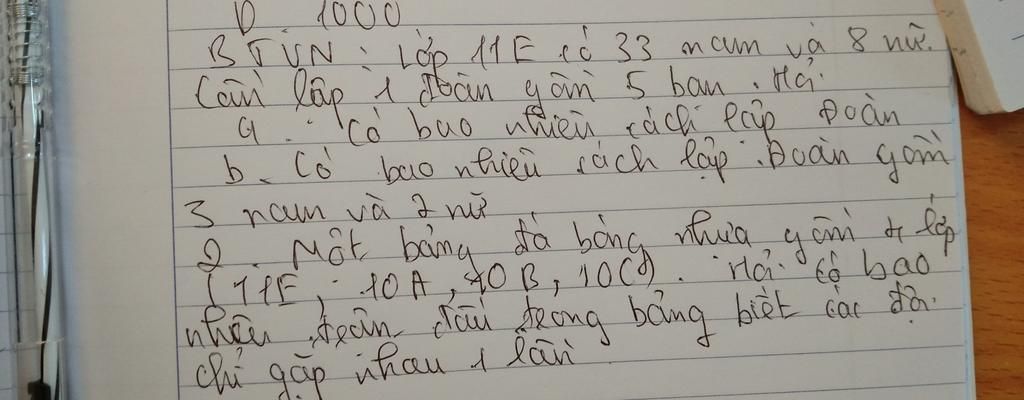 D 1000
BTVN : Lớp 11E có 33 nam và 8 nữ.
Cần lập 1 đoàn gồm 5 bạn. Hỏi
a. Có bao nhiêu cách lập Đoàn
b. Có bao nhiêu cách lập Đoàn gồm
3 nam và 2 nữ
2. Một bảng đá bóng nhựa gồm 4 lớp
{11E, 10A, 10B, 10C}. Hỏi có bao
nhiêu trận đấu trong bảng biết các đội
chỉ gặp nhau 1 lần